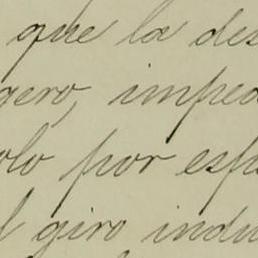 que la des
gero, imped
olo por esp
l giro indu